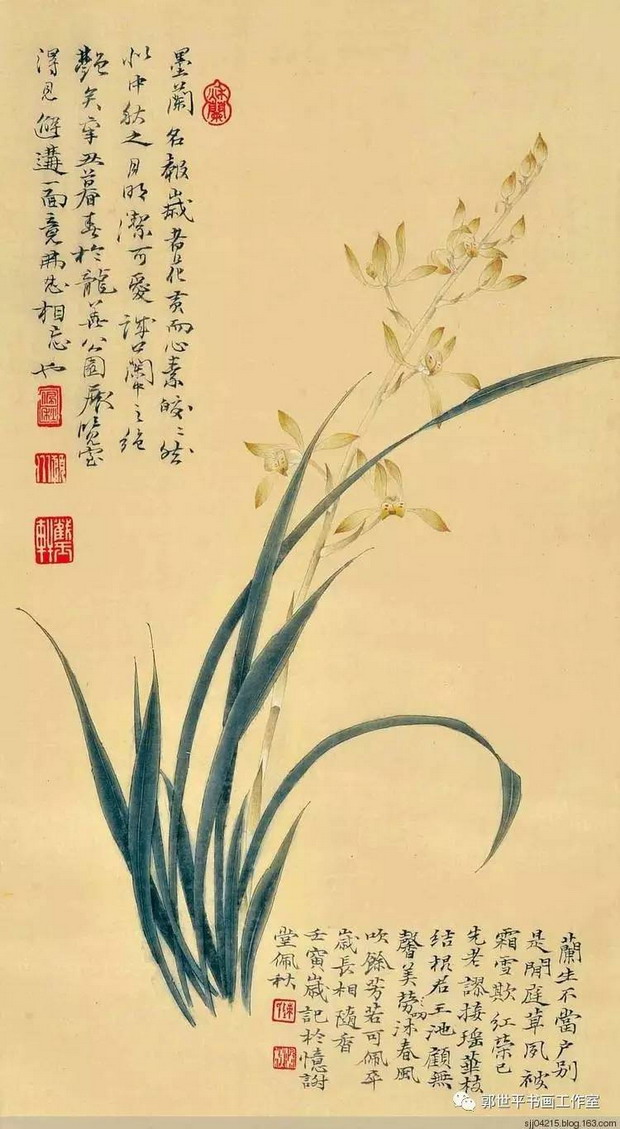 墨蘭名報歲者花黃而心素皎々然
似中秋之月明潔可愛誠蘭中之絕
艷矣辛丑暮春於龍華公園展覽室
得見邂遘一面竟弗忍相忘也
蘭生不當戶別
是閒庭草夙被
霜雪欺紅榮已
先老謬接瑤華枝
結根君王池顧無
馨美叨沐春風
吹餘芳若可佩卒
歲長相隨香
壬寅歲記於憶謝
堂佩秋
郭世平书画工作室
sjj04215.blog.163.com